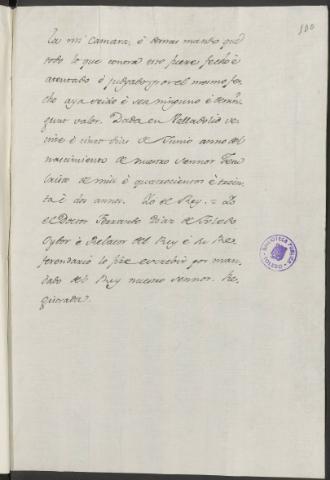 100
la mi camara, è demas mando que
todo lo que contra esto fuere fecho è
atentado ò judgado por el mesmo fe-
cho aya seido è sea ninguno è de nin-
gun valor. Dada en Valladolid ve-
inte è cinco dias de Junio anno del
nascimiento de nuestro Sennor Jesu
Cristo de mill è quatrocientos è trein-
ta è dos annos. Yo el Rey. = Yo
el Doctor Ferrando Diaz de Toledo
Oydor è Relator del Rey è su Re-
ferendario lo fize escrebir por man-
dado del Rey nuestro Sennor. Re-
gistrada.
BIBLIOTECA PUBLICA
TOLEDO